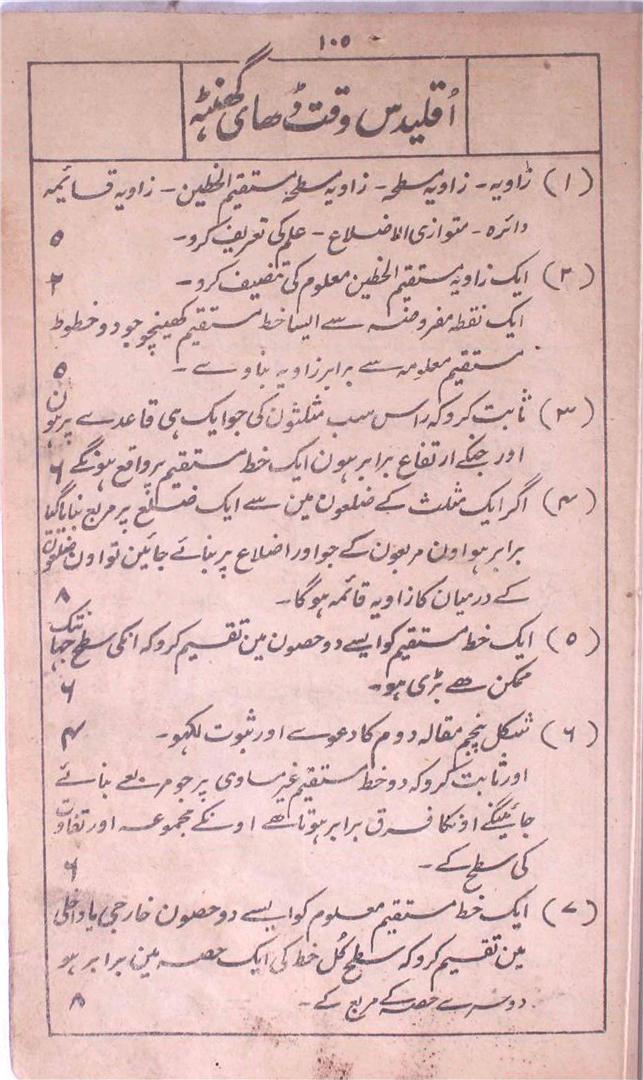 ۱۰۵
اُقلیدس وقت ڈھای گھنٹہ
(۱) زاویہ - زاویہ سطح - زاویہ سطح مستقیم الخطین - زاویہ قائیمہ
دائرہ - متوازی الاضلاع - علم کی تعریف کرو - ۵
(۲) ایک زاویہ مستقیم الخطین معلوم کی تنصیف کرو - ۲
ایک نقطہ مفروضہ سے ایسا خط مستقیم کھینچو جو دو خطوط
مستقیم معلومہ سے برابر زاویہ بناوے - ۵
(۳) ثابت کرو کہ راس سب مثلثون کی جو ایک ہی قاعدے پر ہون
اور جنکے ارتفاع برابر ہون ایک خط مستقیم پر واقع ہونگے ۶
(۴) اگر ایک مثلث کے ضلعون مین سے ایک ضلع پر مربع بنایا گیا
برابر ہو اون مربعون کے جو اور اضلاع پر بنائے جائین تو اون ضلعون
کے درمیان کا زاویہ قائمہ ہوگا - ۸
(۵) ایک خط مستقیم کو ایسے دو حصون مین تقسیم کرو کہ انکی سطح جہانتک
ممکن ھے بڑی ہو - ۶
(۶) شکل پنجم مقالہ دوم کا دعوے اور ثبوت لکھو - ۴
اور ثابت کرو کہ دو خط مستقیم غیر مساوی پر جو مربعے بنائے
جائینگے اونکا فرق برابر ہوتا ھے اونکے مجموعہ اور تفاوت
کی سطح کے - ۶
(۷) ایک خط مستقیم معلوم کو ایسے دو حصون خارجی یا داخلی
مین تقسیم کرو کہ سطح کُل خط کی ایک حصہ مین برابر ہو
دوسرے حصہ کے مربع کے - ۸